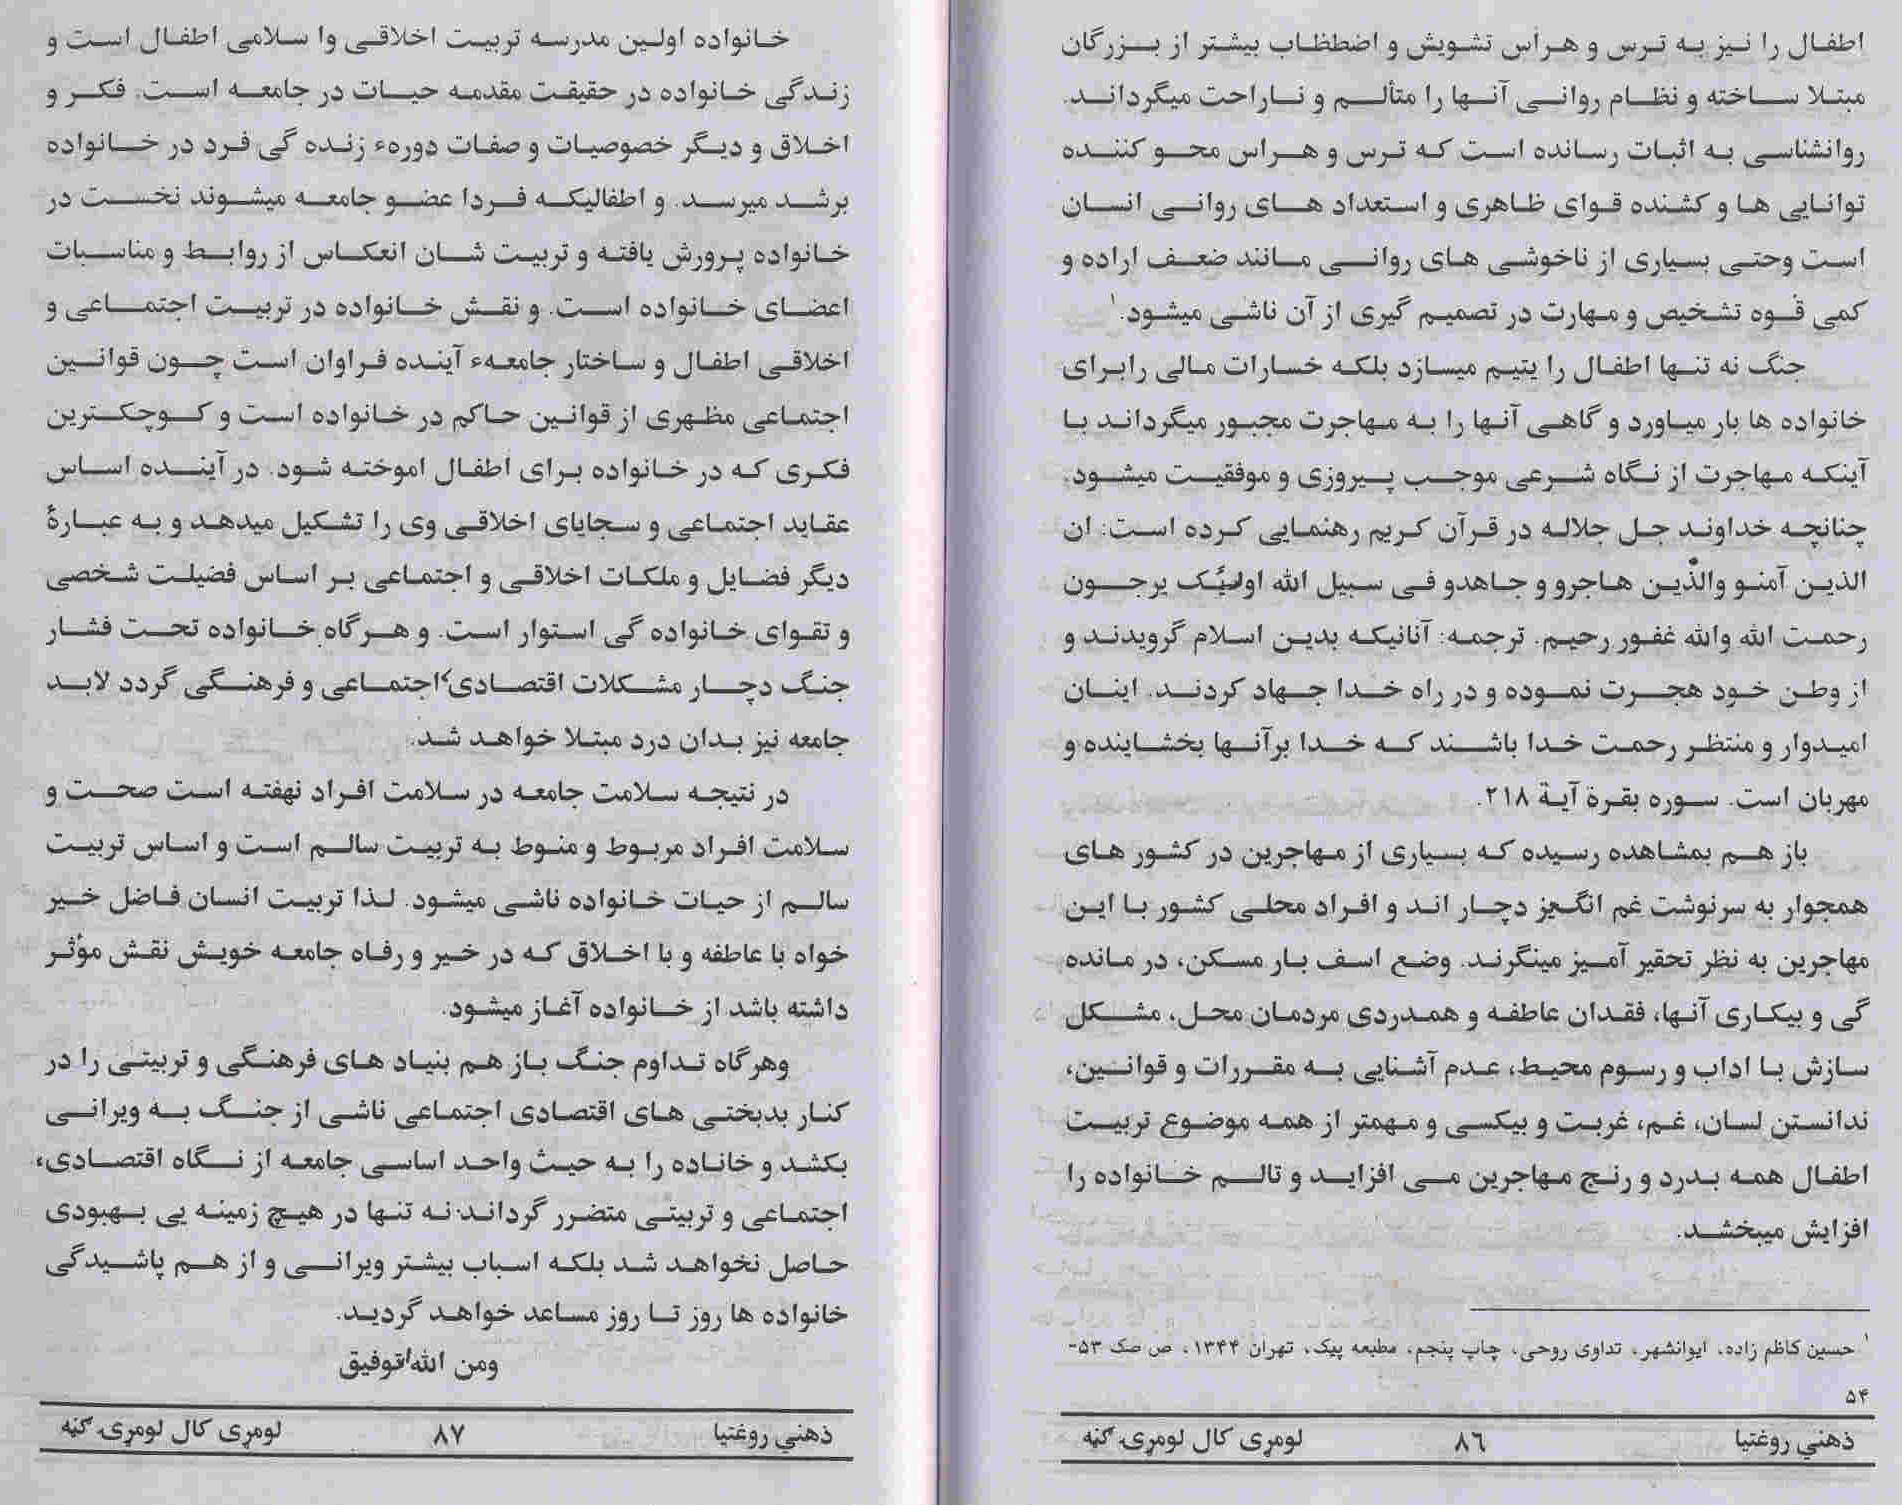 اطفال را نیز به ترس و هراس تشویش و اضطظاب بیشتر از بزرگان
مبتلا ساخته و نظام روانی آنها را متألم و ناراحت میگرداند.
روانشناسی به اثبات رسانده است که ترس و هراس محو کننده
توانایی ها و کشنده قوای ظاهری و استعداد های روانی انسان
است وحتی بسیاری از ناخوشی های روانی مانند ضعف اراده و
کمی قوه تشخیص و مهارت در تصمیم گیری از آن ناشی میشود.۱
جنگ نه تنها اطفال را یتیم میسازد بلکه خسارات مالی رابرای
خانواده ها بار میاورد و گاهی آنها را به مهاجرت مجبور میگرداند با
آینکه مهاجرت از نگاه شرعی موجب پیروزی و موفقیت میشود.
چنانچه خداوند جل جلاله در قرآن کریم رهنمایی کرده است: ان
الذین آمنو والذین هاجرو و جاهدو فی سبیل الله اولئک یرجون
رحمت الله والله غفور رحیم. ترجمه: آنانیکه بدین اسلام گرویدند و
از وطن خود هجرت نموده و در راه خدا جهاد کردند. اینان
امیدوار و منتظر رحمت خدا باشند که خدا برآنها بخشاینده و
مهربان است. سوره بقرة آیة ۲۱۸.
باز هم بمشاهده رسیده که بسیاری از مهاجرین در کشور های
همجوار به سرنوشت غم انگیز دچار اند و افراد محلی کشور با این
مهاجرین به نظر تحقیر آمیز مینگرند. وضع اسف بار مسکن، در مانده
گی و بیکاری آنها، فقدان عاطفه و همدردی مردمان محل، مشکل
سازش با اداب و رسوم محیط، عدم آشنایی به مقررات و قوانین،
ندانستن لسان، غم، غربت و بیکسی و مهمتر از همه موضوع تربیت
اطفال همه بدرد و رنج مهاجرین می افزاید و تالم خانواده را
افزایش میبخشد.
۱ حسین کاظم زاده، ایوانشهر، تداوی روحی، چاپ پنجم، مطبعه پیک، تهران ۱۳۴۴، ص صک ۵۳-
۵۴
ذهني روغتيا ۸۶ لومړی کال لومړۍ ګڼه
خانواده اولین مدرسه تربیت اخلاقی وا سلامی اطفال است و
زندگی خانواده در حقیقت مقدمه حیات در جامعه است. فکر و
اخلاق و دیگر خصوصیات و صفات دورهء زنده گی فرد در خانواده
برشد میرسد. و اطفالیکه فردا عضو جامعه میشوند نخست در
خانواده پرورش یافته و تربیت شان انعکاس از روابط و مناسبات
اعضای خانواده است. و نقش خانواده در تربیت اجتماعی و
اخلاقی اطفال و ساختار جامعهء آینده فراوان است چون قوانین
اجتماعی مظهری از قوانین حاکم در خانواده است و کوچکترین
فکری که در خانواده برای اطفال اموخته شود. در آینده اساس
عقاید اجتماعی و سجایای اخلاقی وی را تشکیل میدهد و به عبارۀ
دیگر فضایل و ملکات اخلاقی و اجتماعی بر اساس فضیلت شخصی
و تقوای خانواده گی استوار است. و هرگاه خانواده تحت فشار
جنگ دچار مشکلات اقتصادی، اجتماعی و فرهنگی گردد لابد
جامعه نیز بدان درد مبتلا خواهد شد.
در نتیجه سلامت جامعه در سلامت افراد نهفته است صحت و
سلامت افراد مربوط و منوط به تربیت سالم است و اساس تربیت
سالم از حیات خانواده ناشی میشود. لذا تربیت انسان فاضل خیر
خواه با عاطفه و با اخلاق که در خیر و رفاه جامعه خویش نقش مؤثر
داشته باشد از خانواده آغاز میشود.
وهرگاه تداوم جنگ باز هم بنیاد های فرهنگی و تربیتی را در
کنار بدبختی های اقتصادی اجتماعی ناشی از جنگ به ویرانی
بکشد و خاناده را به حیث واحد اساسی جامعه از نگاه اقتصادی،
اجتماعی و تربیتی متضرر گرداند. نه تنها در هیچ زمینه یی بهبودی
حاصل نخواهد شد بلکه اسباب بیشتر ویرانی و از هم پاشیدگی
خانواده ها روز تا روز مساعد خواهد گردید.
ومن الله التوفیق
ذهني روغتيا ۸۷ لومړی کال لومړۍ ګڼه